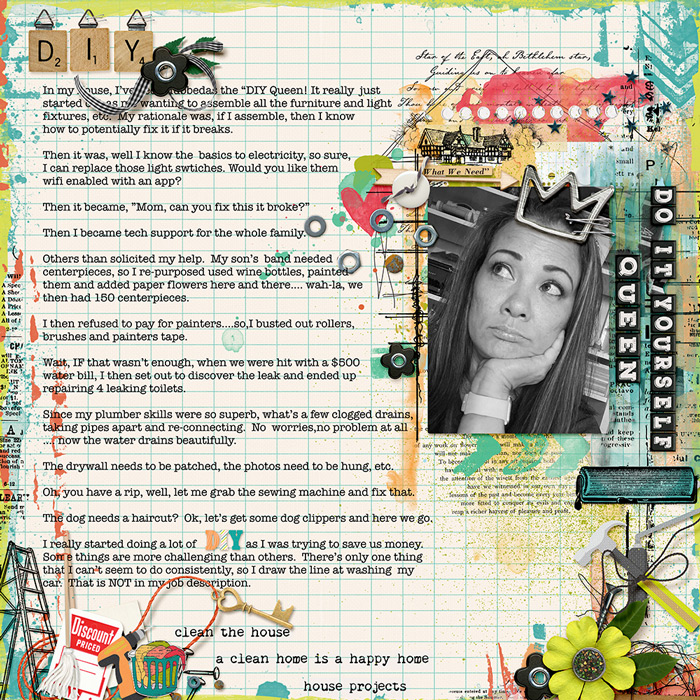 D I Y
2 1 4
In my house, I've dubbedas the "DIY Queen! It really just
started as me wanting to assemble all the furniture and light
fixtures, etc. My rationale was, if I assemble, then I know
how to potentially fix it if it breaks.
Then it was, well I know the basics to electricity, so sure,
I can replace those light swtiches. Would you like them
wifi enabled with an app?
Then it became, "Mom, can you fix this it broke?"
Then I became tech support for the whole family.
Others than solicited my help. My son's band needed
centerpieces, so I re-purposed used wine bottles, painted
them and added paper flowers here and there.... wah-la, we
then had 150 centerpieces.
I then refused to pay for painters....so,I busted out rollers,
brushes and painters tape.
Wait, IF that wasn't enough, when we were hit with a $500
water bill, I then set out to discover the leak and ended up
repairing 4 leaking toilets.
Since my plumber skills were so superb, what's a few clogged drains,
taking pipes apart and re-connecting. No worries,no problem at all
... now the water drains beautifully.
The drywall needs to be patched, the photos need to be hung, etc.
Oh, you have a rip, well, let me grab the sewing machine and fix that.
The dog needs a haircut? Ok, let's get some dog clippers and here we go.
I really started doing a lot of DIY as I was trying to save us money.
Some things are more challenging than others. There's only one thing
that I can't seem to do consistently, so I draw the line at washing my
car. That is NOT in my job description.
Star of the East, oh Bethlehem star,
Guiding us on to
"What We Need"
DO IT YOURSELF
QUEEN
the attention of the
lessons of the past and become every year
more fitted to conquer its evils and
reap a richer harvest of pleasure and profit.
Discount
PRICED
clean the house
a clean home is a happy home
house projects